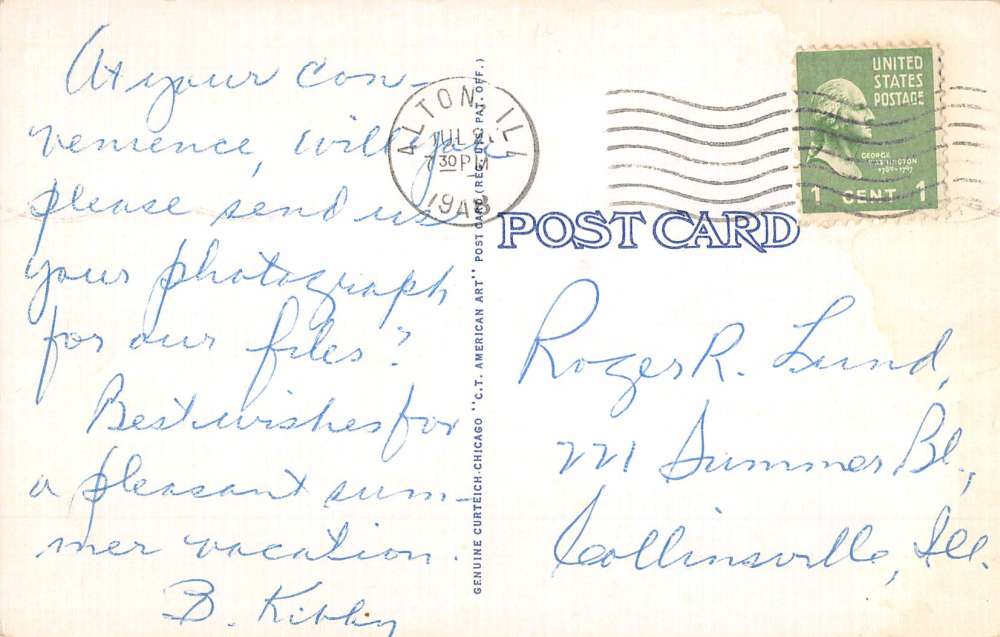 At your con-
venience, will you
please send us
your photograph
for our files?
Best wishes for
a pleasant sum-
mer vacation.
B. Kibby
GENUINE CURTEICH-CHICAGO "C.T. AMERICAN ART" POST CARD (REG. U.S. PAT. OFF.)
ALTON, ILL
JUL
7 30 PM
194
UNITED
STATES
POSTAGE
GEORGE
WASHINGTON
1789-1797
1 CENT 1
POST CARD
Roger R. Lund,
221 Summer Bl.,
Collinsville, Ill.